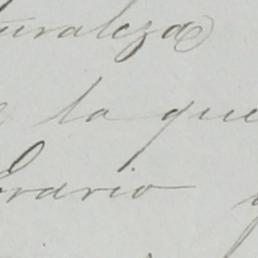 turaleza
de la que
Erario